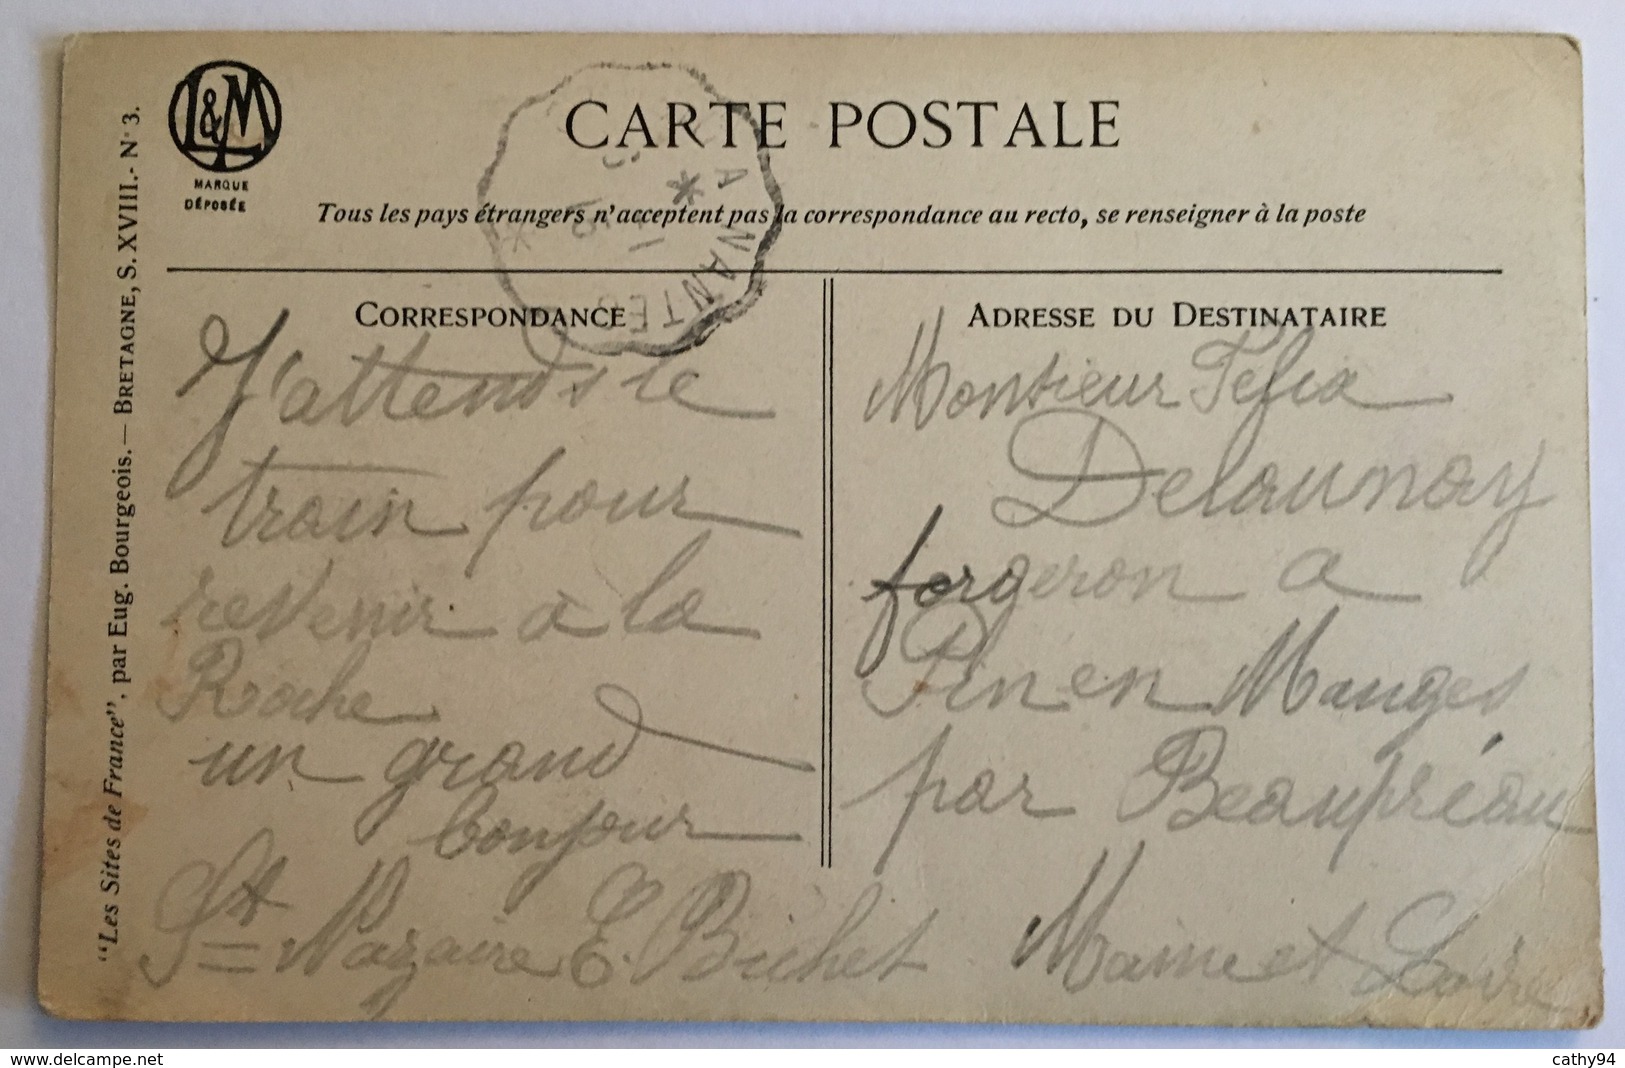 L&M
MARQUE
DÉPOSÉE
CARTE POSTALE
Tous les pays étrangers n'acceptent pas la correspondance au recto, se renseigner à la poste
A NANTES
"Les Sites de France", par Eug. Bourgeois. — BRETAGNE, S. XVIII. - N° 3.
CORRESPONDANCE
J'attends le
train pour
revenir à la
Roche
un grand
bonjour
St Nazaire E. Bichet
ADRESSE DU DESTINATAIRE
Monsieur
Delaunay
forgeron a
Pin en Mauges
par Beaupréau
Maine et Loire
www.delcampe.net
cathy94